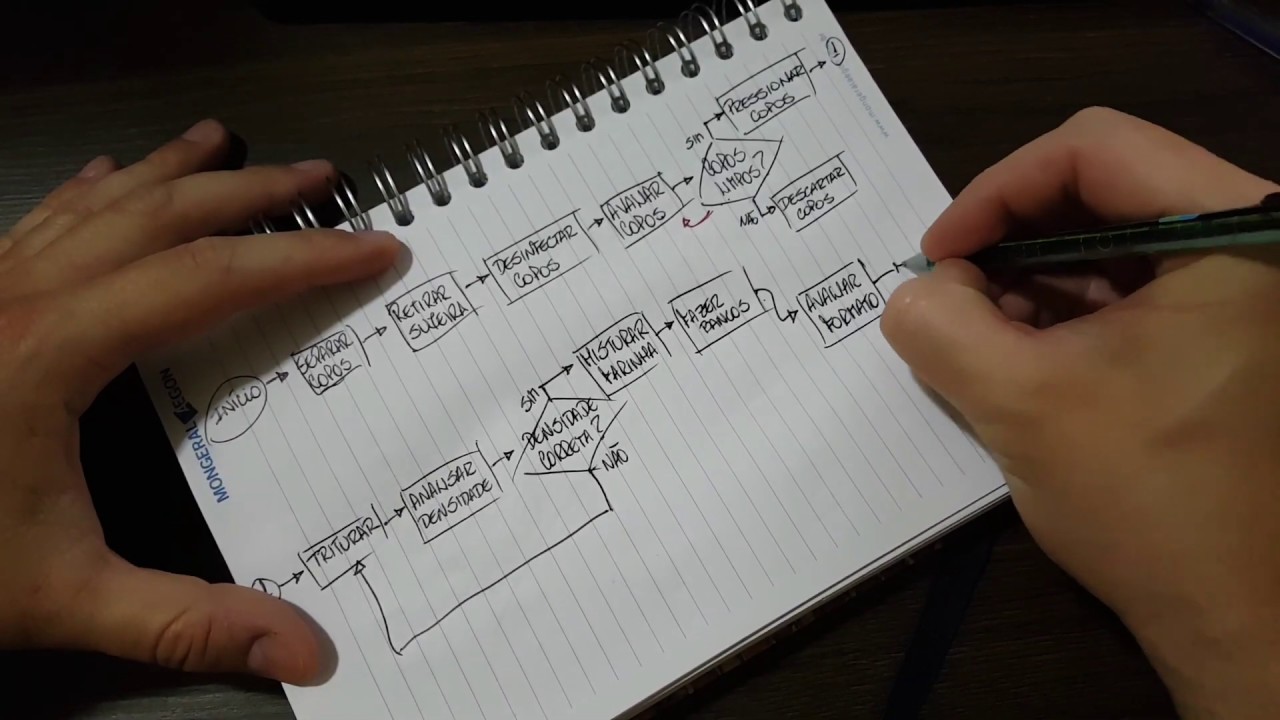 INÍCIO
SEPARAR
COPOS
RETIRAR
SUJEIRA
DESINFECTAR
COPOS
AVALIAR
COPOS
COPOS
LIMPOS?
SIM
PRESSIONAR
COPOS
1
NÃO
DESCARTAR
COPOS
1
TRITURAR
ANALISAR
DENSIDADE
DENSIDADE
CORRETA?
SIM
NÃO
MISTURAR
FARINHA
FAZER
AVALIAR
FORMATO
MONGERAL AEGON